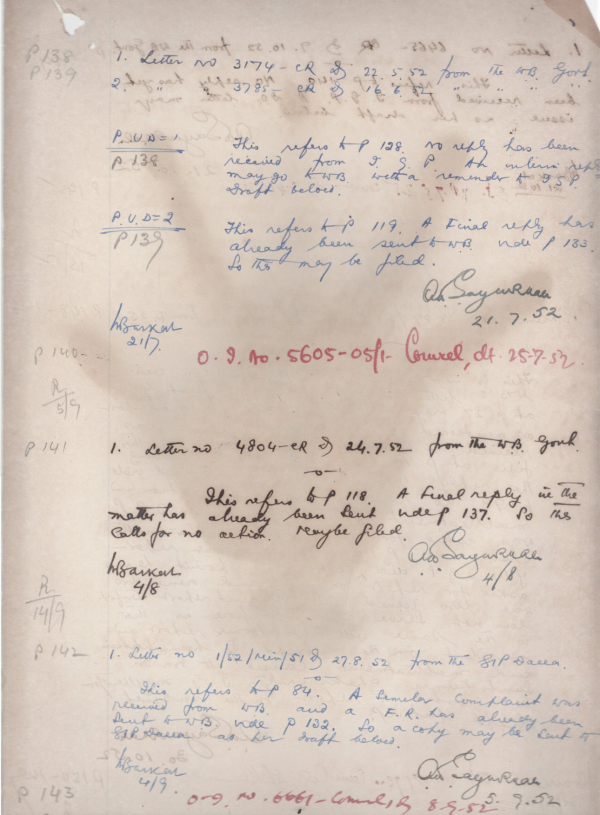 P 138
P 139
1. Letter no 3174-CR D/ 22.5.52 from the W.B. Govt.
2. " " 3785-CR D/ 16.6.52 " " "
P.U.D=1
P 138
This refers to P 128. No reply has been
received from I. G. P. An interim reply
may go to WB with a reminder to I G P.
Draft below.
P.U.D=2
P139
This refers to P 119. A Final reply has
already been sent to WB. vide P 133.
So this may be filed.
21.7.52.
21/7
P 140
O. I. No. 5605-05/1- dt. 25-7-52
R
5/9
P 141
1. Letter no 4804-CR D/ 24.7.52 from the W.B. Govt.
This refers to P 118. A Final reply in the
matter has already been sent vide P 137. So this
calls for no action. Maybe filed.
4/8
4/8
R
14/9
P 142
1. Letter no 1/52/Min/51 D/ 27.8.52 from the S/P Dacca.
This refers to P 84. A Similar Complaint was
received from WB. and a F.R. has already been
sent to WB vide P 132. So a copy may be sent to
S/P Dacca as per draft below.
4/9
5.9.52
P 143
O-I. No. 6661- 8-9-52